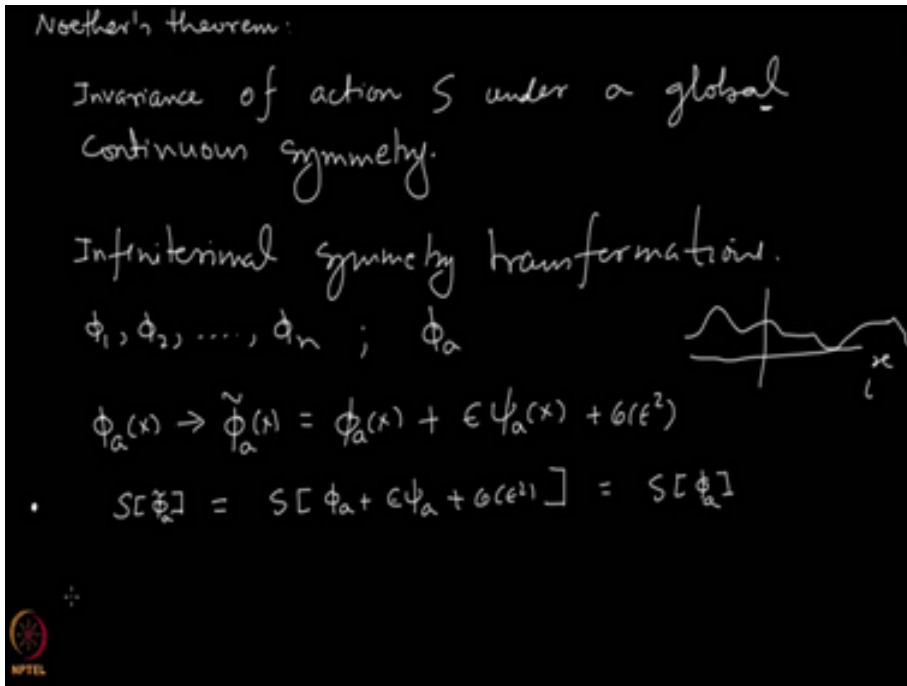 Noether's theorem:
Invariance of action S under a global
continuous symmetry.
Infinitesimal symmetry transformations.
ϕ₁, ϕ₂, ...., ϕₙ ; ϕₐ
x
ϕₐ(x) → ϕ̃ₐ(x) = ϕₐ(x) + ϵψₐ(x) + O(ϵ²)
S[ϕ̃ₐ] = S[ϕₐ + ϵψₐ + O(ϵ²)] = S[ϕₐ]
NPTEL